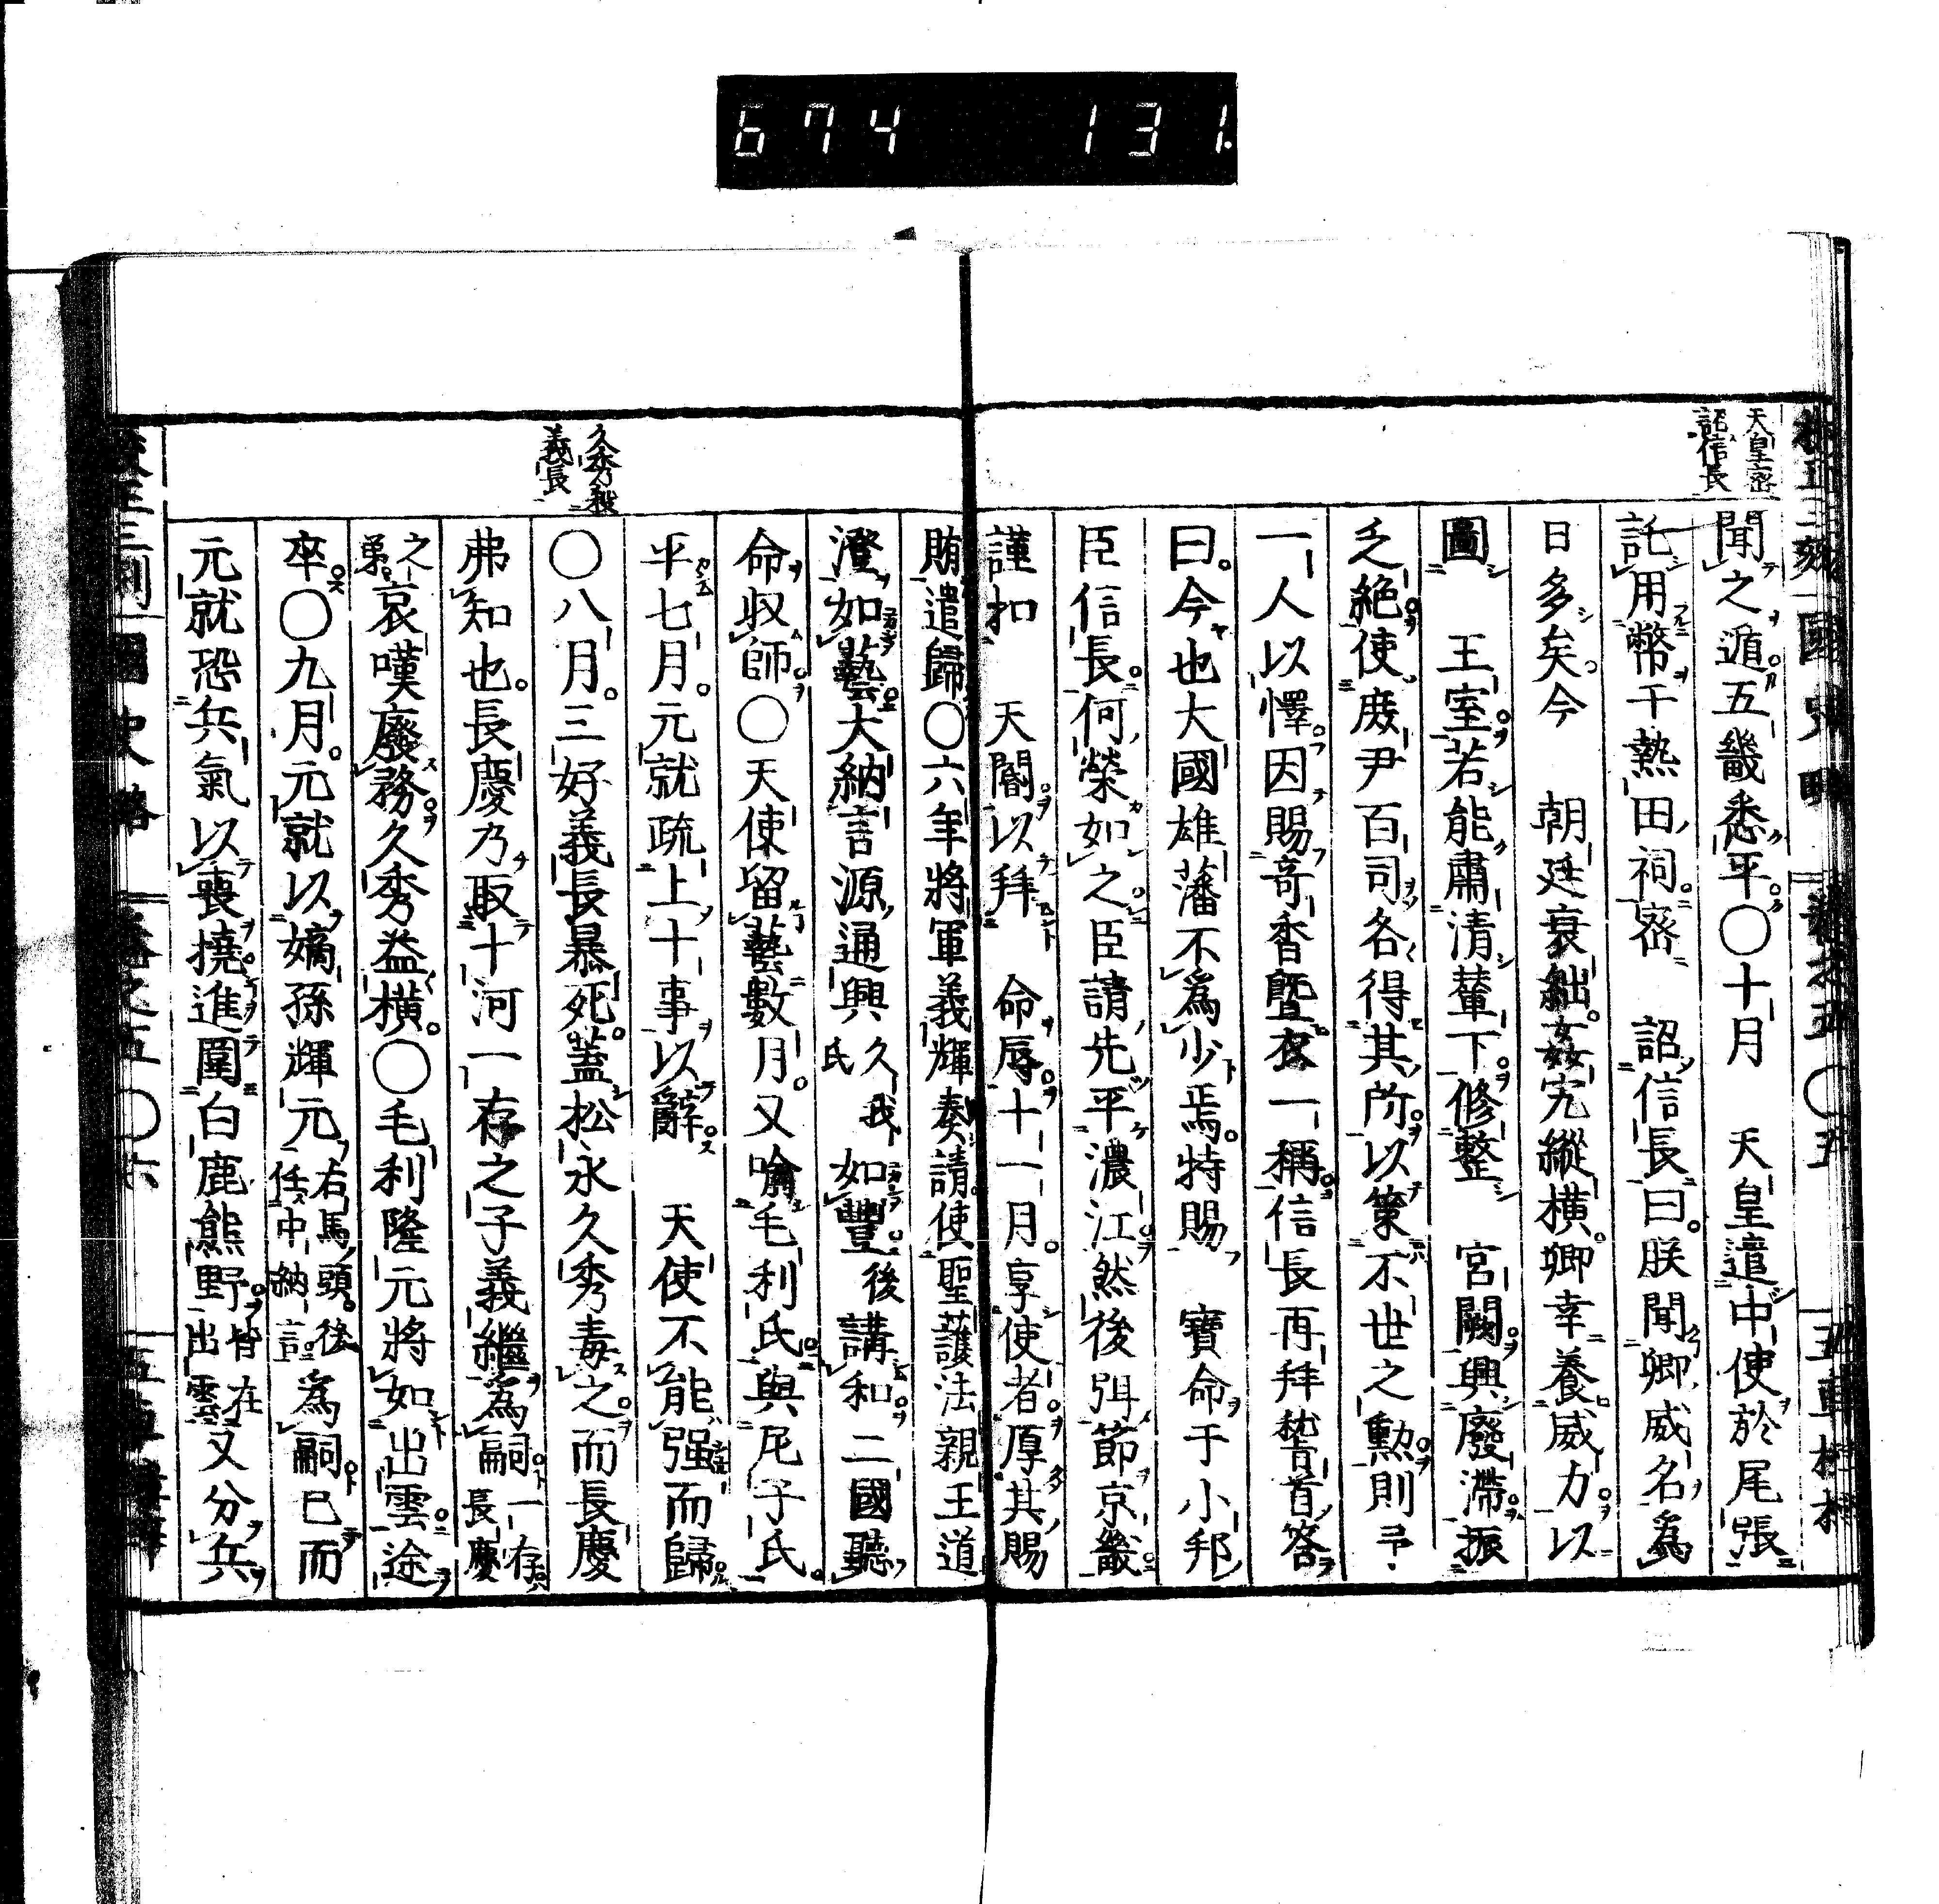 674 131
天皇密
詔信長
聞之遁五畿悉平○十月 天皇遣中使於尾張
託用幣于熱田祠密 詔信長曰朕聞卿威名為
日多矣今 朝廷衰絀姦宄縱橫卿幸養威力以
圖 王室若能肅清輦下修整 宮闕興廢滯振
乏絕使庶尹百司各得其所以策不世之勲則予
一人以懌因賜奇香曁衣一稱信長再拜稽首答
曰今也大國雄藩不為少焉特賜 寶命于小邦
臣信長何榮如之臣請先平濃江然後弭節京畿
謹扣 天閽以拜 命辱十一月享使者厚其賜
賄遣歸○六年將軍義輝奏請使聖護法親王道
澄如藝大納言源通興久我氏如豐後講和二國聽
命収師○天使留藝數月又喻毛利氏與尼子氏
平七月元就疏上十事以辭 天使不能强而歸
久秀殺
義長
○八月三好義長暴死蓋松永久秀毒之而長慶
弗知也長慶乃取十河一存之子義繼為嗣一存長慶
之弟哀嘆廢務久秀益橫○毛利隆元將如出雲途
卒○九月元就以嫡孫輝元右馬頭後任中納言為嗣已而
元就恐兵氣以喪撓進圍白鹿熊野皆在出雲又分兵